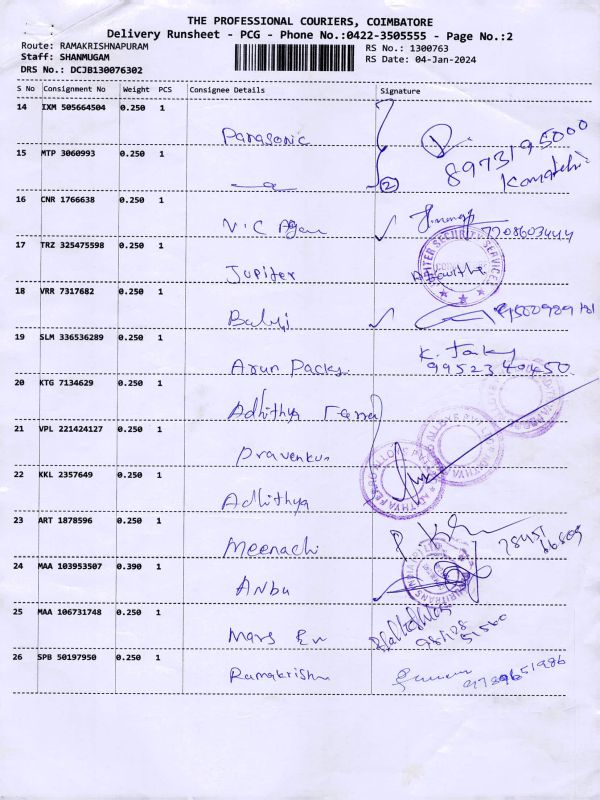 THE PROFESSIONAL COURIERS, COIMBATORE
Delivery Runsheet - PCG - Phone No.:0422-3505555 - Page No.:2
Route: RAMAKRISHNAPURAM
Staff: SHANMUGAM
DRS No.: DCJB130076302
RS No.: 1300763
RS Date: 04-Jan-2024
S No Consignment No Weight PCS Consignee Details Signature
14 IXM 505664504 0.250 1
Parasonic
15 MTP 3060993 0.250 1
2
8973195000
16 CNR 1766638 0.250 1
V.C Agen
7208603444
17 TRZ 325475598 0.250 1
Jupiter
18 VRR 7317682 0.250 1
Balaji
19 SLM 336536289 0.250 1
Arun Packs
9952340450
20 KTG 7134629 0.250 1
Adhithya
21 VPL 221424127 0.250 1
Pravenkus
22 KKL 2357649 0.250 1
Adhithya
23 ART 1878596 0.250 1
Meenachi
24 MAA 103953507 0.390 1
Anbu
25 MAA 106731748 0.250 1
Mars En
26 SPB 50197950 0.250 1
Ramakrishn
9789651986